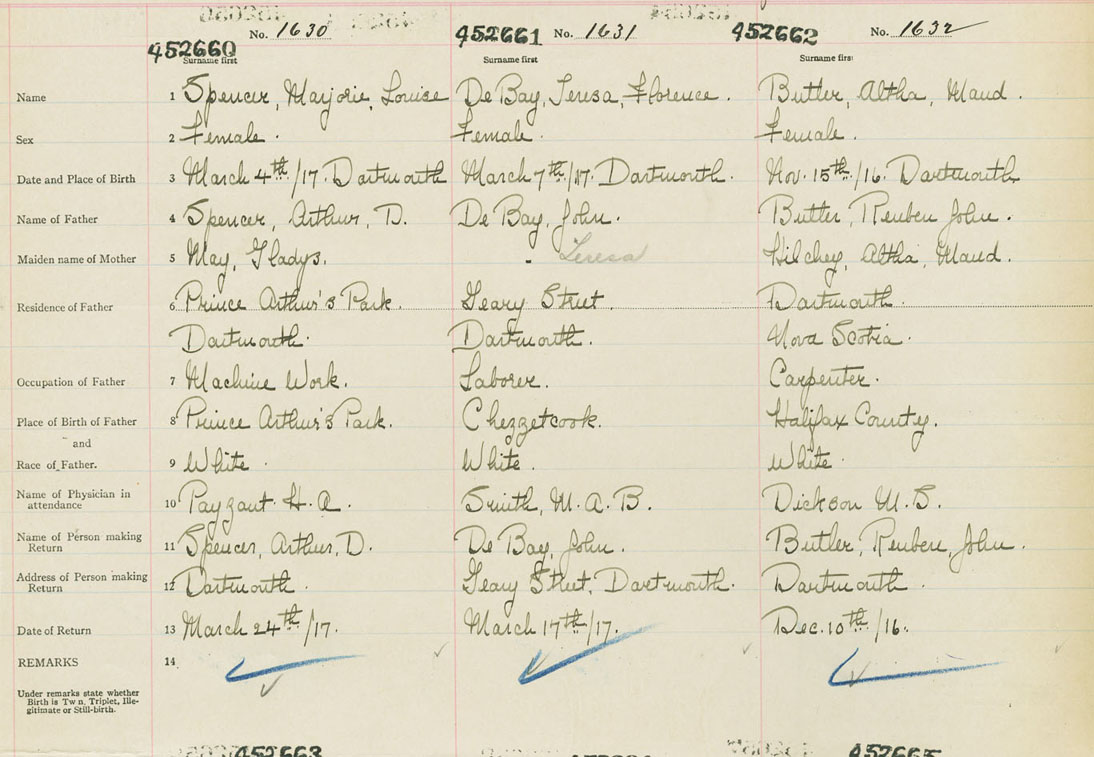 No. 1630
452660
Surname first
452661
No. 1631
Surname first
452662
No. 1632
Surname first
Name 1 Spencer, Marjorie, Louise De Bay, Teresa, Florence. Butler, Altha, Maud.
Sex 2 Female. Female. Female.
Date and Place of Birth 3 March 4th/17. Dartmouth March 7th/17. Dartmouth. Nov. 15th/16. Dartmouth
Name of Father 4 Spencer, Arthur, D. De Bay, John. Butler, Reuben John.
Maiden name of Mother 5 May, Gladys. - Teresa Hilchey, Altha, Maud.
Residence of Father 6 Prince Arthur's Park. Geary Street. Dartmouth.
Dartmouth. Dartmouth. Nova Scotia.
Occupation of Father 7 Machine Work. Laborer. Carpenter.
Place of Birth of Father 8 Prince Arthur's Park. Chezzetcook. Halifax County.
and
Race of Father. 9 White. White. White.
Name of Physician in
attendance 10 Payzant. H. A. Smith, M. A. B. Dickson M. S.
Name of Person making
Return 11 Spencer, Arthur, D. De Bay, John. Butler, Reuben, John.
Address of Person making
Return 12 Dartmouth. Geary Street, Dartmouth. Dartmouth.
Date of Return 13 March 24th/17. March 17th/17. Dec. 10th/16.
REMARKS 14
Under remarks state whether
Birth is Tw n, Triplet, Ille-
gitimate or Still-birth.
452663
452665